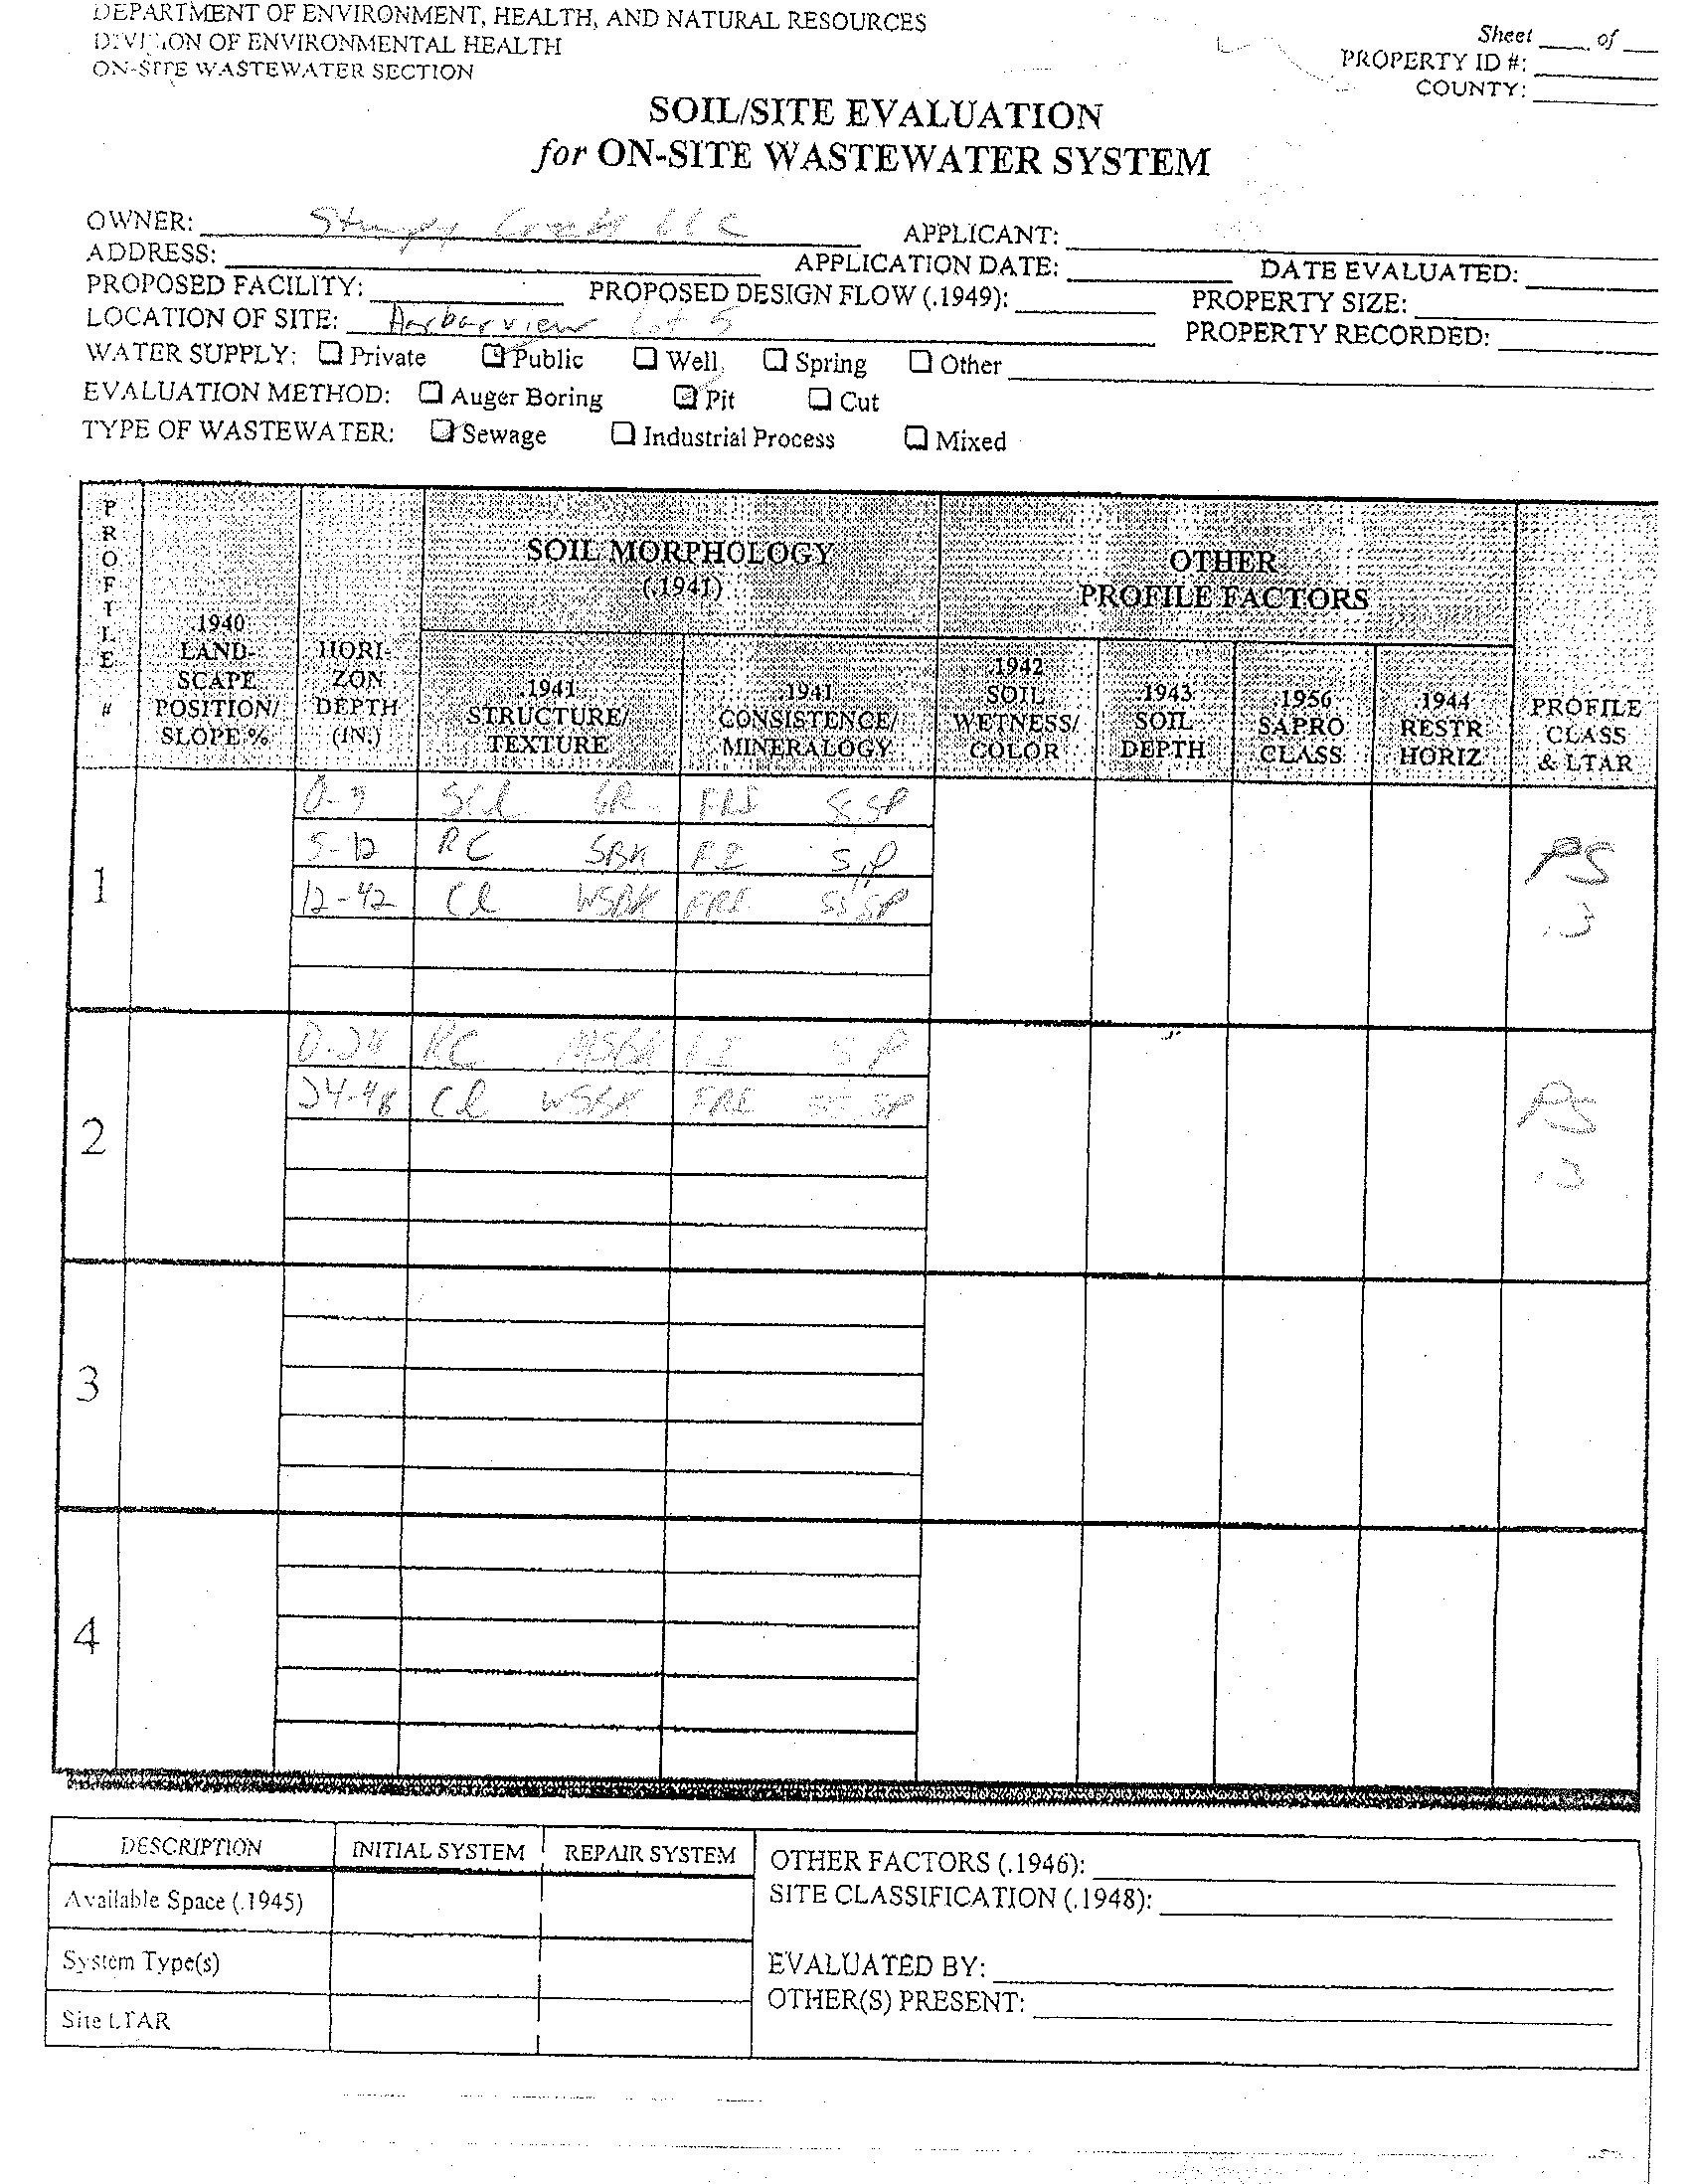 DEPARTMENT OF ENVIRONMENT, HEALTH, AND NATURAL RESOURCES
DIVISION OF ENVIRONMENTAL HEALTH
ON-SITE WASTEWATER SECTION
Sheet ____ of ___
PROPERTY ID #:
COUNTY:
SOIL/SITE EVALUATION
for ON-SITE WASTEWATER SYSTEM
OWNER: Stumpy Creek LLC APPLICANT:
ADDRESS: APPLICATION DATE: DATE EVALUATED:
PROPOSED FACILITY: PROPOSED DESIGN FLOW (.1949): PROPERTY SIZE:
LOCATION OF SITE: Harborview Lot 5 PROPERTY RECORDED:
WATER SUPPLY: ☐ Private ☑ Public ☐ Well ☐ Spring ☐ Other
EVALUATION METHOD: ☐ Auger Boring ☑ Pit ☐ Cut
TYPE OF WASTEWATER: ☑ Sewage ☐ Industrial Process ☐ Mixed
PROFILE #
.1940 LAND-SCAPE POSITION/ SLOPE %
HORI-ZON DEPTH (IN.)
SOIL MORPHOLOGY (.1941)
.1941 STRUCTURE/ TEXTURE
.1941 CONSISTENCE/ MINERALOGY
OTHER PROFILE FACTORS
.1942 SOIL WETNESS/ COLOR
.1943 SOIL DEPTH
.1956 SAPRO CLASS
.1944 RESTR HORIZ
PROFILE CLASS & LTAR
1
SCL GR FRI SS SP
RC SBK FI S,P
12-42 CL WSBK FRI SS SP
PS
.3
2
0-24 RC MSBK FI S P
24-48 CL WSBK FRI SS SP
PS
.3
3
4
DESCRIPTION INITIAL SYSTEM REPAIR SYSTEM
Available Space (.1945)
System Type(s)
Site LTAR
OTHER FACTORS (.1946):
SITE CLASSIFICATION (.1948):
EVALUATED BY:
OTHER(S) PRESENT: